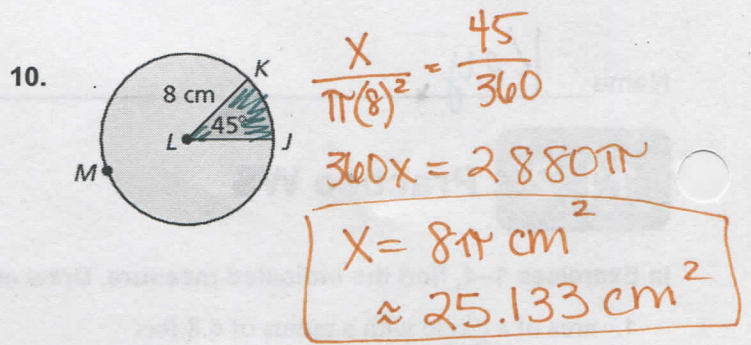 10.
K
8 cm
45°
L
J
M
x/π(8)² = 45/360
360x = 2880π
x = 8π cm²
≈ 25.133 cm²